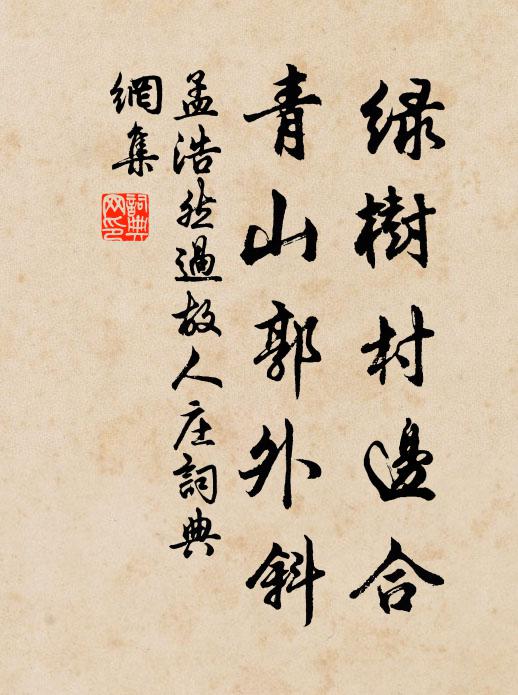 綠樹村邊合
青山郭外斜
孟浩然過故人庄詞典
網集
詞典
网印